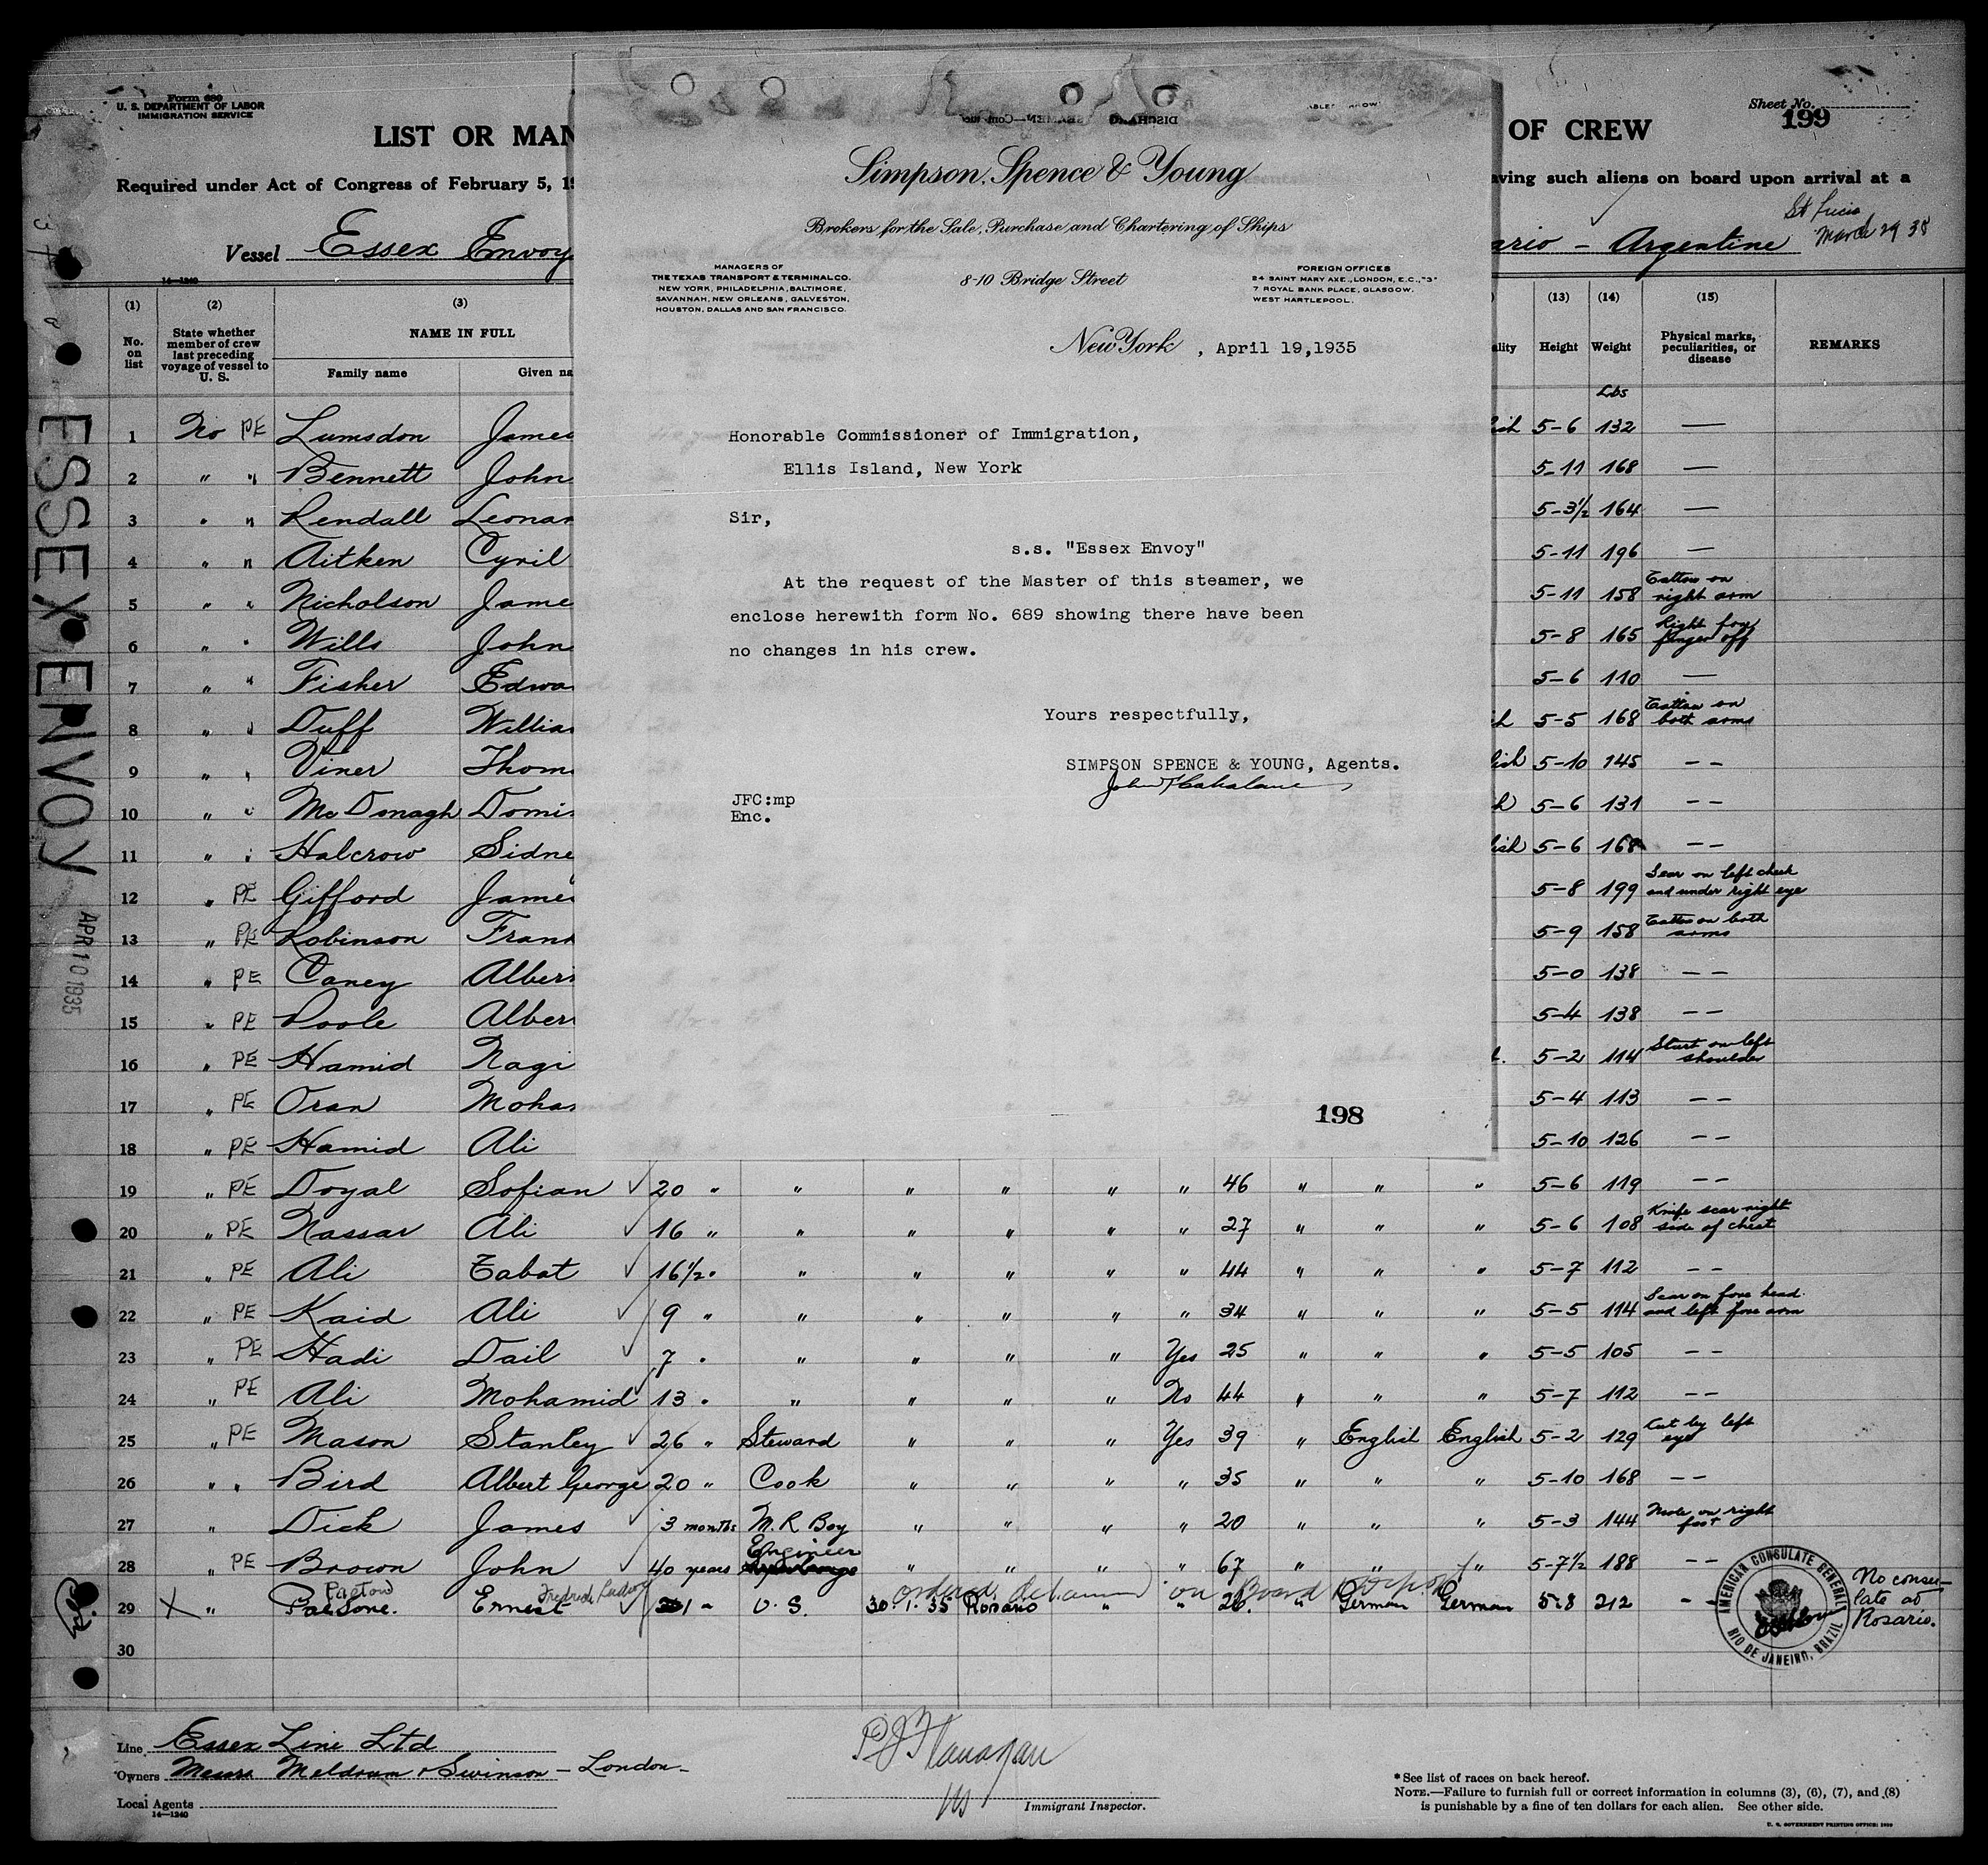 Form 689
U. S. DEPARTMENT OF LABOR
IMMIGRATION SERVICE
Sheet No.
199
LIST OR MAN
OF CREW
Required under Act of Congress of February 5, 19
aving such aliens on board upon arrival at a
Vessel Essex Envoy
ario - Argentine
St Lucia
March 29 35
14-1240
Simpson, Spence & Young
Brokers for the Sale, Purchase and Chartering of Ships
MANAGERS OF
THE TEXAS TRANSPORT & TERMINAL CO.
NEW YORK, PHILADELPHIA, BALTIMORE,
SAVANNAH, NEW ORLEANS, GALVESTON,
HOUSTON, DALLAS AND SAN FRANCISCO.
8-10 Bridge Street
FOREIGN OFFICES
24 SAINT MARY AXE., LONDON, E.C., "3"
7 ROYAL BANK PLACE, GLASGOW.
WEST HARTLEPOOL.
New York, April 19, 1935
Honorable Commissioner of Immigration,
Ellis Island, New York
Sir,
s.s. "Essex Envoy"
At the request of the Master of this steamer, we
enclose herewith form No. 689 showing there have been
no changes in his crew.
Yours respectfully,
SIMPSON SPENCE & YOUNG, Agents.
John F Cahalane
JFC:mp
Enc.
198
(1) (2) (3) (13) (14) (15)
No. on list
State whether member of crew last preceding voyage of vessel to U. S.
NAME IN FULL
Family name Given na
ality Height Weight Physical marks, peculiarities, or disease REMARKS
Lbs
1 No PE Lumsdon James ish 5-6 132 —
2 " " Bennett John 5-11 168 —
3 " " Rendall Leonar 5-3½ 164 —
4 " " Aitken Cyril 5-11 196 —
5 " " Nicholson Jame 5-11 158 Tattoo on right arm
6 " " Wills John 5-8 165 Right fore finger off
7 " " Fisher Edwa 5-6 110 —
8 " " Duff Willia h 5-5 168 Tattoo on both arms
9 " " Viner Thom lish 5-10 145 - -
10 " " McDonagh Domi h 5-6 131 - -
11 " " Halcrow Sidne lish 5-6 168 - -
12 " PE Gifford James 5-8 199 Scar on left cheek and under right eye
13 " PE Robinson Frank 5-9 158 Tattoo on both arms
14 " PE Caney Alber 5-0 138 - -
15 " PE Poole Alber 5-4 138 - -
16 " PE Hamid Nagi 5-2 114 left shoulder
17 " PE Oran Moham 5-4 113 - -
18 " PE Hamid Ali 5-10 126 - -
19 " PE Doyal Sofian 20 " " " " " " 46 " " " 5-6 119 - -
20 " PE Nassar Ali 16 " " " " " " 27 " " " 5-6 108 Knife scar right side of chest
21 " PE Ali Tabat 16½ " " " " " " 44 " " " 5-7 112 - -
22 " PE Kaid Ali 9 " " " " " " 34 " " " 5-5 114 Scar on fore head and left fore arm
23 " PE Hadi Dail 7 " " " " " Yes 25 " " " 5-5 105 - -
24 " PE Ali Mohamid 13 " " " " " No 44 " " " 5-7 112 - -
25 " PE Mason Stanley 26 " Steward " " " Yes 39 " English English 5-2 129 Cut by left eye
26 " " Bird Albert George 20 " Cook " " " " 35 " " " 5-10 168 - -
27 " Dick James 3 months M. R. Boy " " " " 20 " " " 5-3 144 Mole on right foot
28 " PE Brown John 40 years Engineer " " " " 67 " " " 5-7½ 188 - -
Pastow Fredrick Ludwig ordered detained on Board
29 X " Ernest 1 " O. S. 30.1.35 Rosario " " 26. " German German 5-8 212 -
30
AMERICAN CONSULATE GENERAL
RIO DE JANEIRO, BRAZIL
No consulate at Rosario.
ESSEX ENVOY
APR 10 1935
Line Essex Line Ltd
Owners Messrs Meldrum & Swinson - London
Local Agents
14-1240
P J Flanagan
Immigrant Inspector.
* See list of races on back hereof.
NOTE.—Failure to furnish full or correct information in columns (3), (6), (7), and (8)
is punishable by a fine of ten dollars for each alien. See other side.
U. S. GOVERNMENT PRINTING OFFICE: 1930